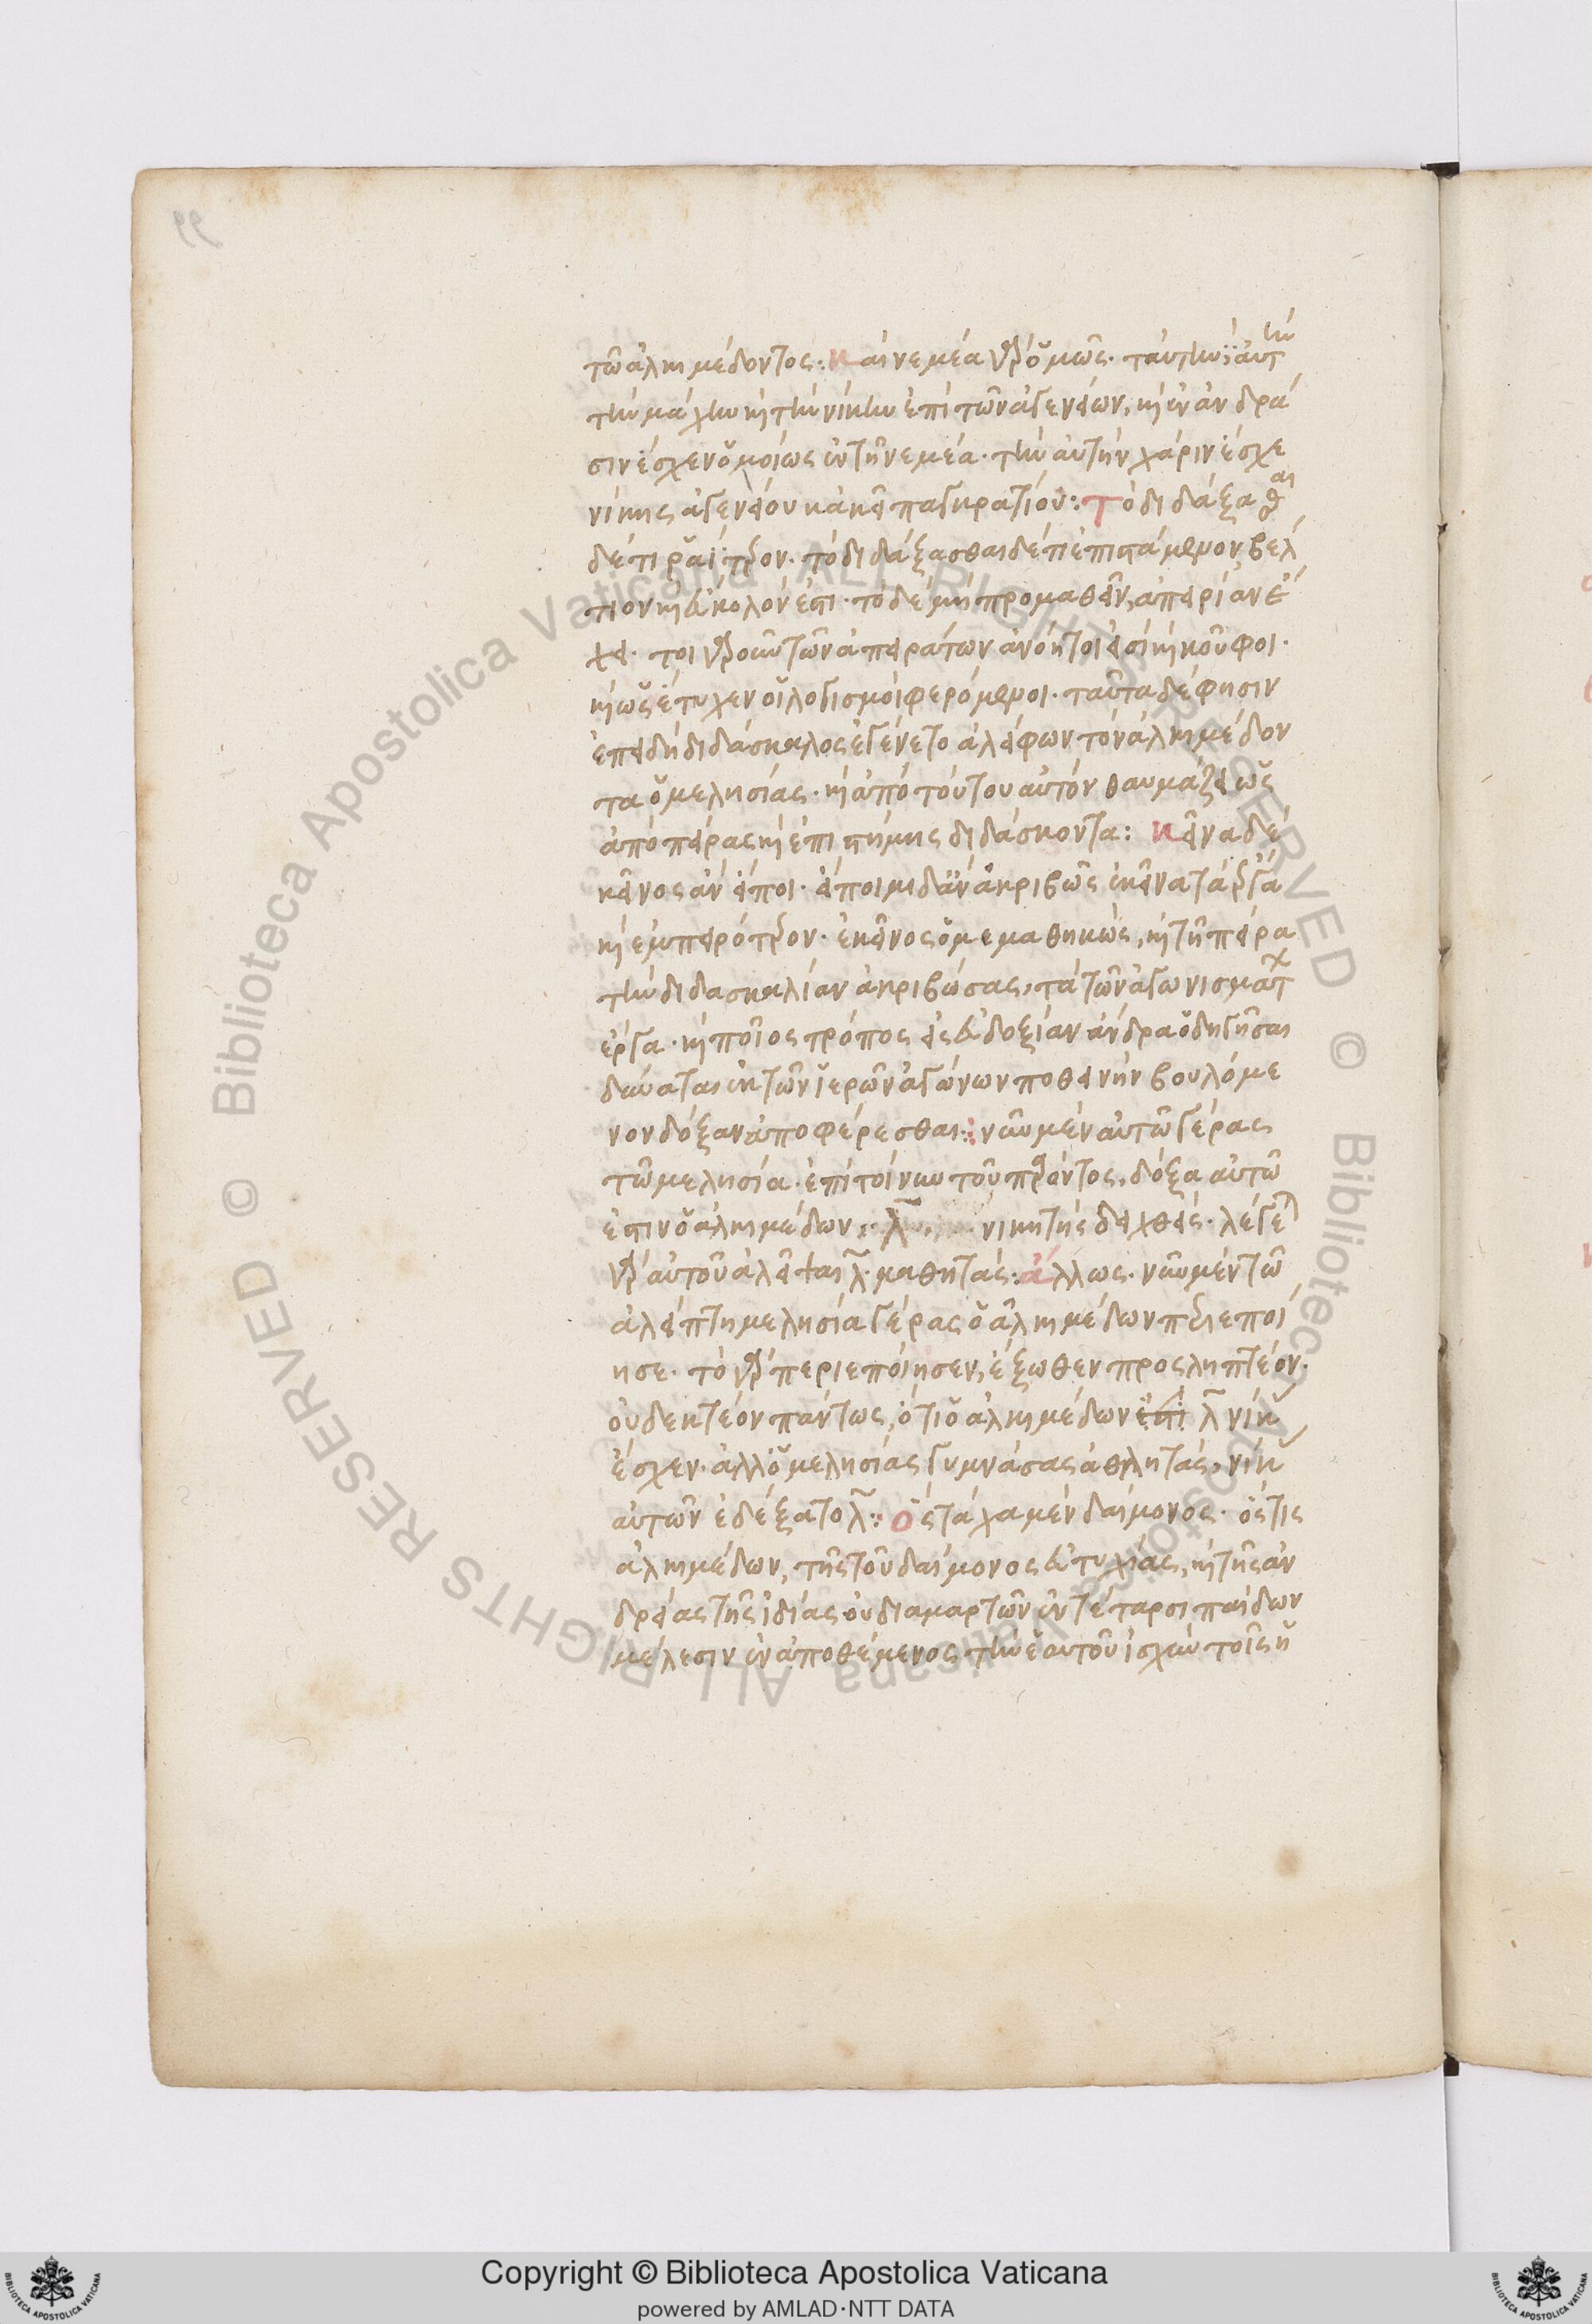 τῶ ἀλκιμέδοντος: καὶ νεμέα γὰρ ὁμῶς. ταύτην αὐτὴν
τὴν μάχην κὶ τὴν νίκην ἐπὶ τῶν ἀγενείων, κὶ ἐν ἀνδρά
σιν ἔσχεν ὁμοίως ἐν τῆ νεμέα. τὴν αὐτὴν χάριν ἔσχε
νίκης ἀγενείου κἀκεῖ παγκρατίου: τὸ διδάξασθαι
δέ τι ῥαΐτερον. τὸ διδάξασθαι δέ τι ἐπιστάμενον, βέλ
τιον κὶ εὔκολόν ἐστι. τὸ δὲ μὴ προμαθεῖν, ἀπειρίαν ἔ
χει. τοι γαροῦν τῶν ἀπειράτων ἀνόητοί εἰσι κὶ κοῦφοι.
κὶ ὡς ἔτυχεν οἱ λογισμοὶ φερόμενοι. ταῦτα δέ φησιν
ἐπειδὴ διδάσκαλος ἐγένετο ἀλείφων τὸν ἀλκιμέδον
τα ὁ μελησίας. κὶ ἀπὸ τούτου αὐτὸν θαυμάζει ὡς
ἀπὸ πείρας κὶ ἐπιστήμης διδάσκοντα: κεῖνα δὲ
κεῖνος ἂν εἴποι. εἴποιμι δ' ἂν ἀκριβῶς ἐκεῖνα τὰ ἔργα
κὶ ἐμπειρότερον. ἐκεῖνος ὁ μεμαθηκὼς, κὶ τῆ πείρα
τὴν διδασκαλίαν ἀκριβώσας, τὰ τῶν ἀγωνισμάτων
ἔργα. κὶ ποῖος τρόπος εἰς εὐδοξίαν ἄνδρα ὁδηγῆσαι
δύναται ἐκ τῶν ἱερῶν ἀγώνων ποθεινὴν βουλόμε
νον δόξαν ἀποφέρεσθαι: νῦν μὲν αὐτῶ γέρας
τῶ μελησία. ἐπὶ τοίνυν τοῦ παρόντος, δόξα αὐτῶ
ἐστιν ὁ ἀλκιμέδων, λ̄ νικητὴς δειχθείς. λέγει
γὰρ αὐτοῦ ἀλεῖψαι λ̄. μαθητάς: ἄλλως. νῦν μὲν τῶ
ἀλείπτη μελησία γέρας ὁ ἀλκιμέδων περιεποί
ησε. τὸ γὰρ περιεποίησεν, ἔξωθεν προσληπτέον.
οὐ δεκτέον πάντως, ὅτι ὁ ἀλκιμέδων ἐπὶ λ̄ νίκας
ἔσχεν. ἀλλ' ὁ μελησίας γυμνάσας ἀθλητάς, νίκας
αὐτῶν ἐδέξατο λ̄: ὃς τύχα μὲν δαίμονος. ὅστις
ἀλκιμέδων, τῆς τοῦ δαίμονος εὐτυχίας, κὶ τῆς ἀν
δρείας τῆς ἰδίας οὐ διαμαρτῶν ἐν τέταρσι παίδων
μέλεσιν ἐναποθέμενος τὴν ἑαυτοῦ ἰσχὺν τοῖς